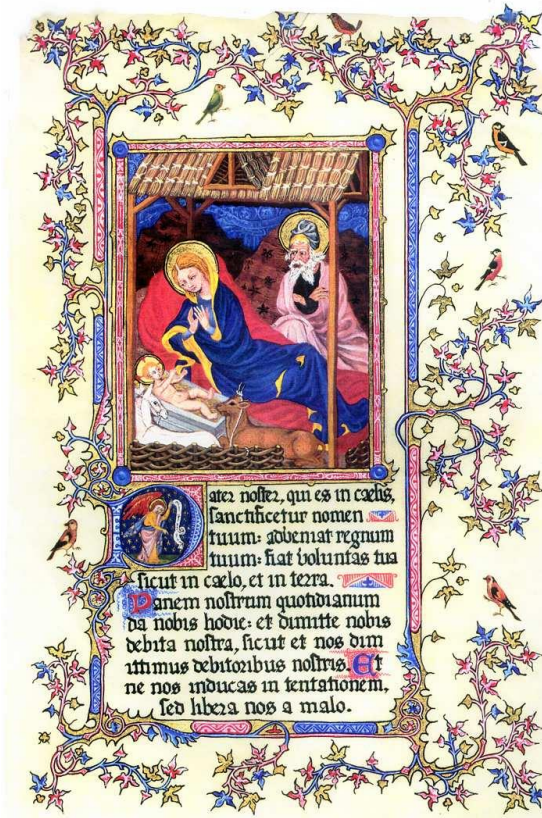 Pater noster, qui es in caelis,
sanctificetur nomen
tuum: adveniat regnum
tuum: fiat voluntas tua
sicut in caelo, et in terra.
Panem nostrum quotidianum
da nobis hodie: et dimitte nobis
debita nostra, sicut et nos dim
ittimus debitoribus nostris. Et
ne nos inducas in tentationem,
sed libera nos a malo.